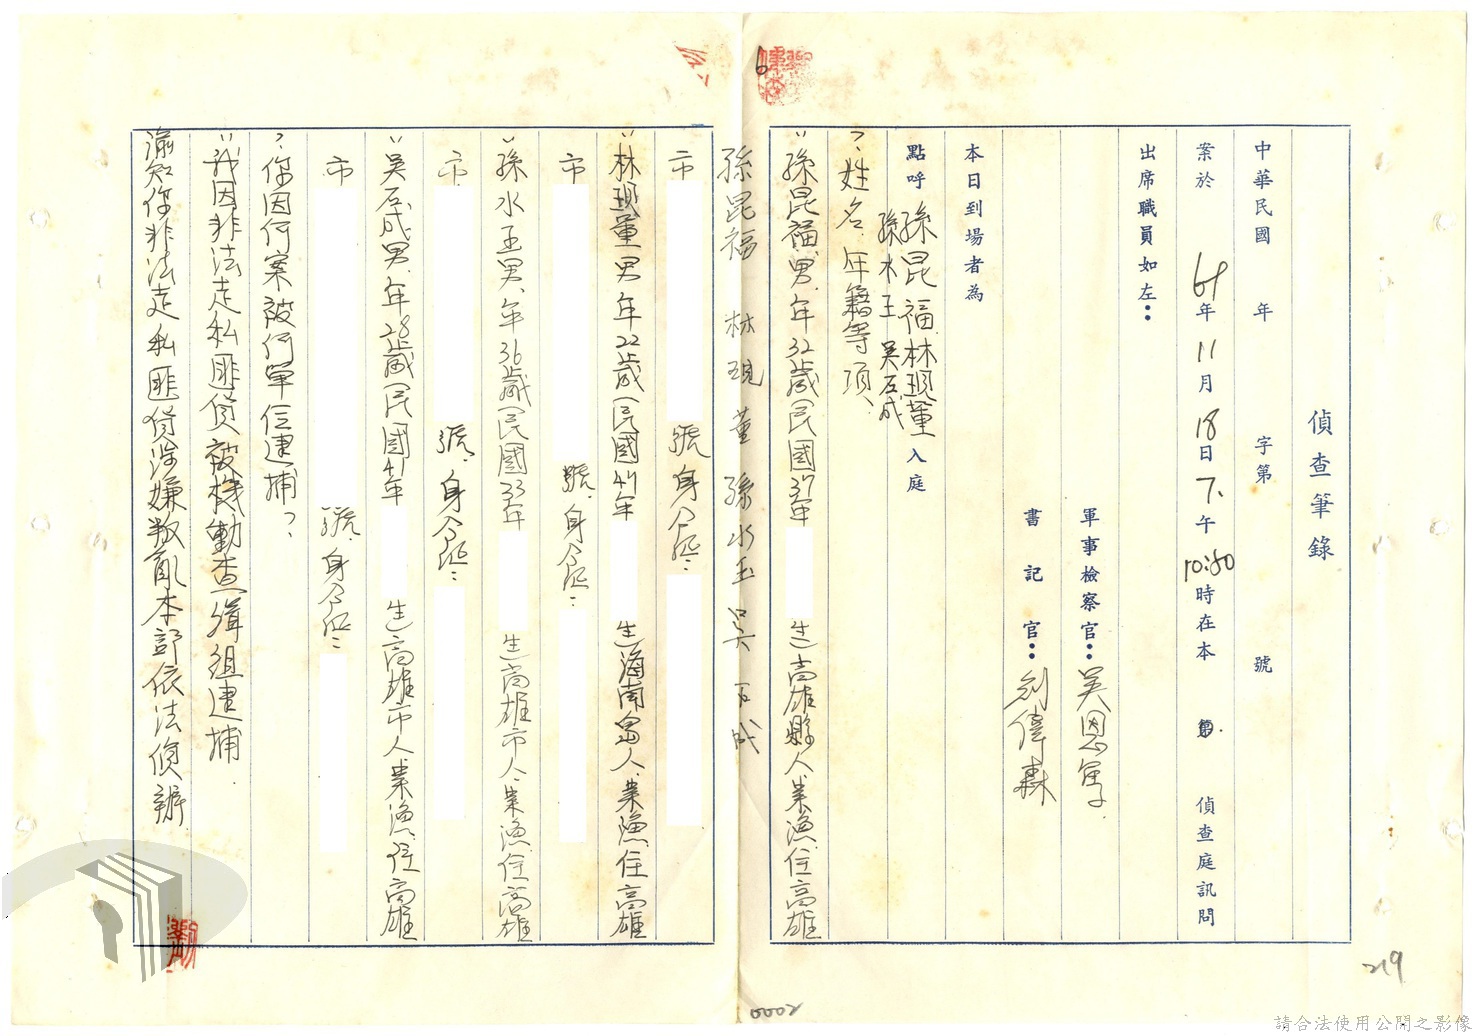 偵查筆錄
中華民國 年 字第 號
案於 年11月18日下午10:50時在本 偵查庭訊問
出席職員如左：
軍事檢察官：吳恩軍
書記官：劉偉森
本日到場者為
點呼 孫昆福 林 董 入庭
孫水玉 吳石成
?：姓名、年籍等項、
：孫昆福、男、年32歲民國37年 生高雄縣人業漁住高雄
孫昆福 林 董 孫水玉 吳石成
市 號、身分証：
：林 董男年22歲民國47年 生海南島人、業漁住高雄
市 號、身分証：
：孫水玉男、年36歲民國33年 生高雄市人、業漁、住高雄
市 號、身分証：
：吳石成男、年28歲民國41年 生高雄市人業漁、住高雄
市 號、身分証：
?：你因何案被何單位逮捕?
：我因非法走私匪貨被機動查緝組逮捕.
諭知你非法走私匪貨涉嫌叛亂本部依法偵辦
219
0002
請合法使用公開之影像